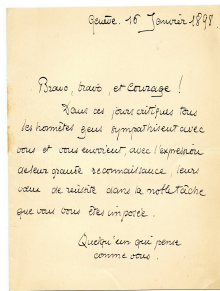 Genève. 16 Janvier 1898.
Bravo, bravo, et Courage !
Dans ces jours critiques tous
les honnêtes gens sympathisent avec
vous et vous envoient, avec l'expression
de leur grande reconnaissance, leurs
vœux de réussite dans la noble tâche
que vous vous êtes imposée.
Quelqu'un qui pense
comme vous.